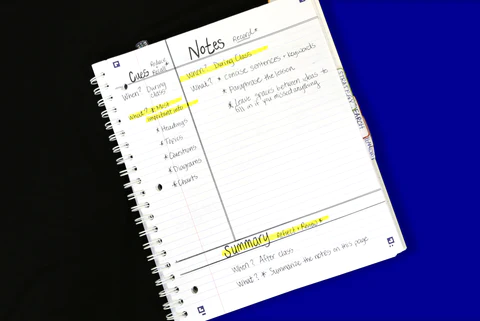 Cues
When? During
class
What? * Most
important info
* Headings
* Topics
* Questions
* Diagrams
* Charts
Notes
Record *
When? During Class
What? * concise sentences + keywords
* Paraphrase the lesson
* Leave spaces between ideas to
fill in if you missed anything
Summary Reflect + Recap *
When? After class
What? * Summarize the notes on this page